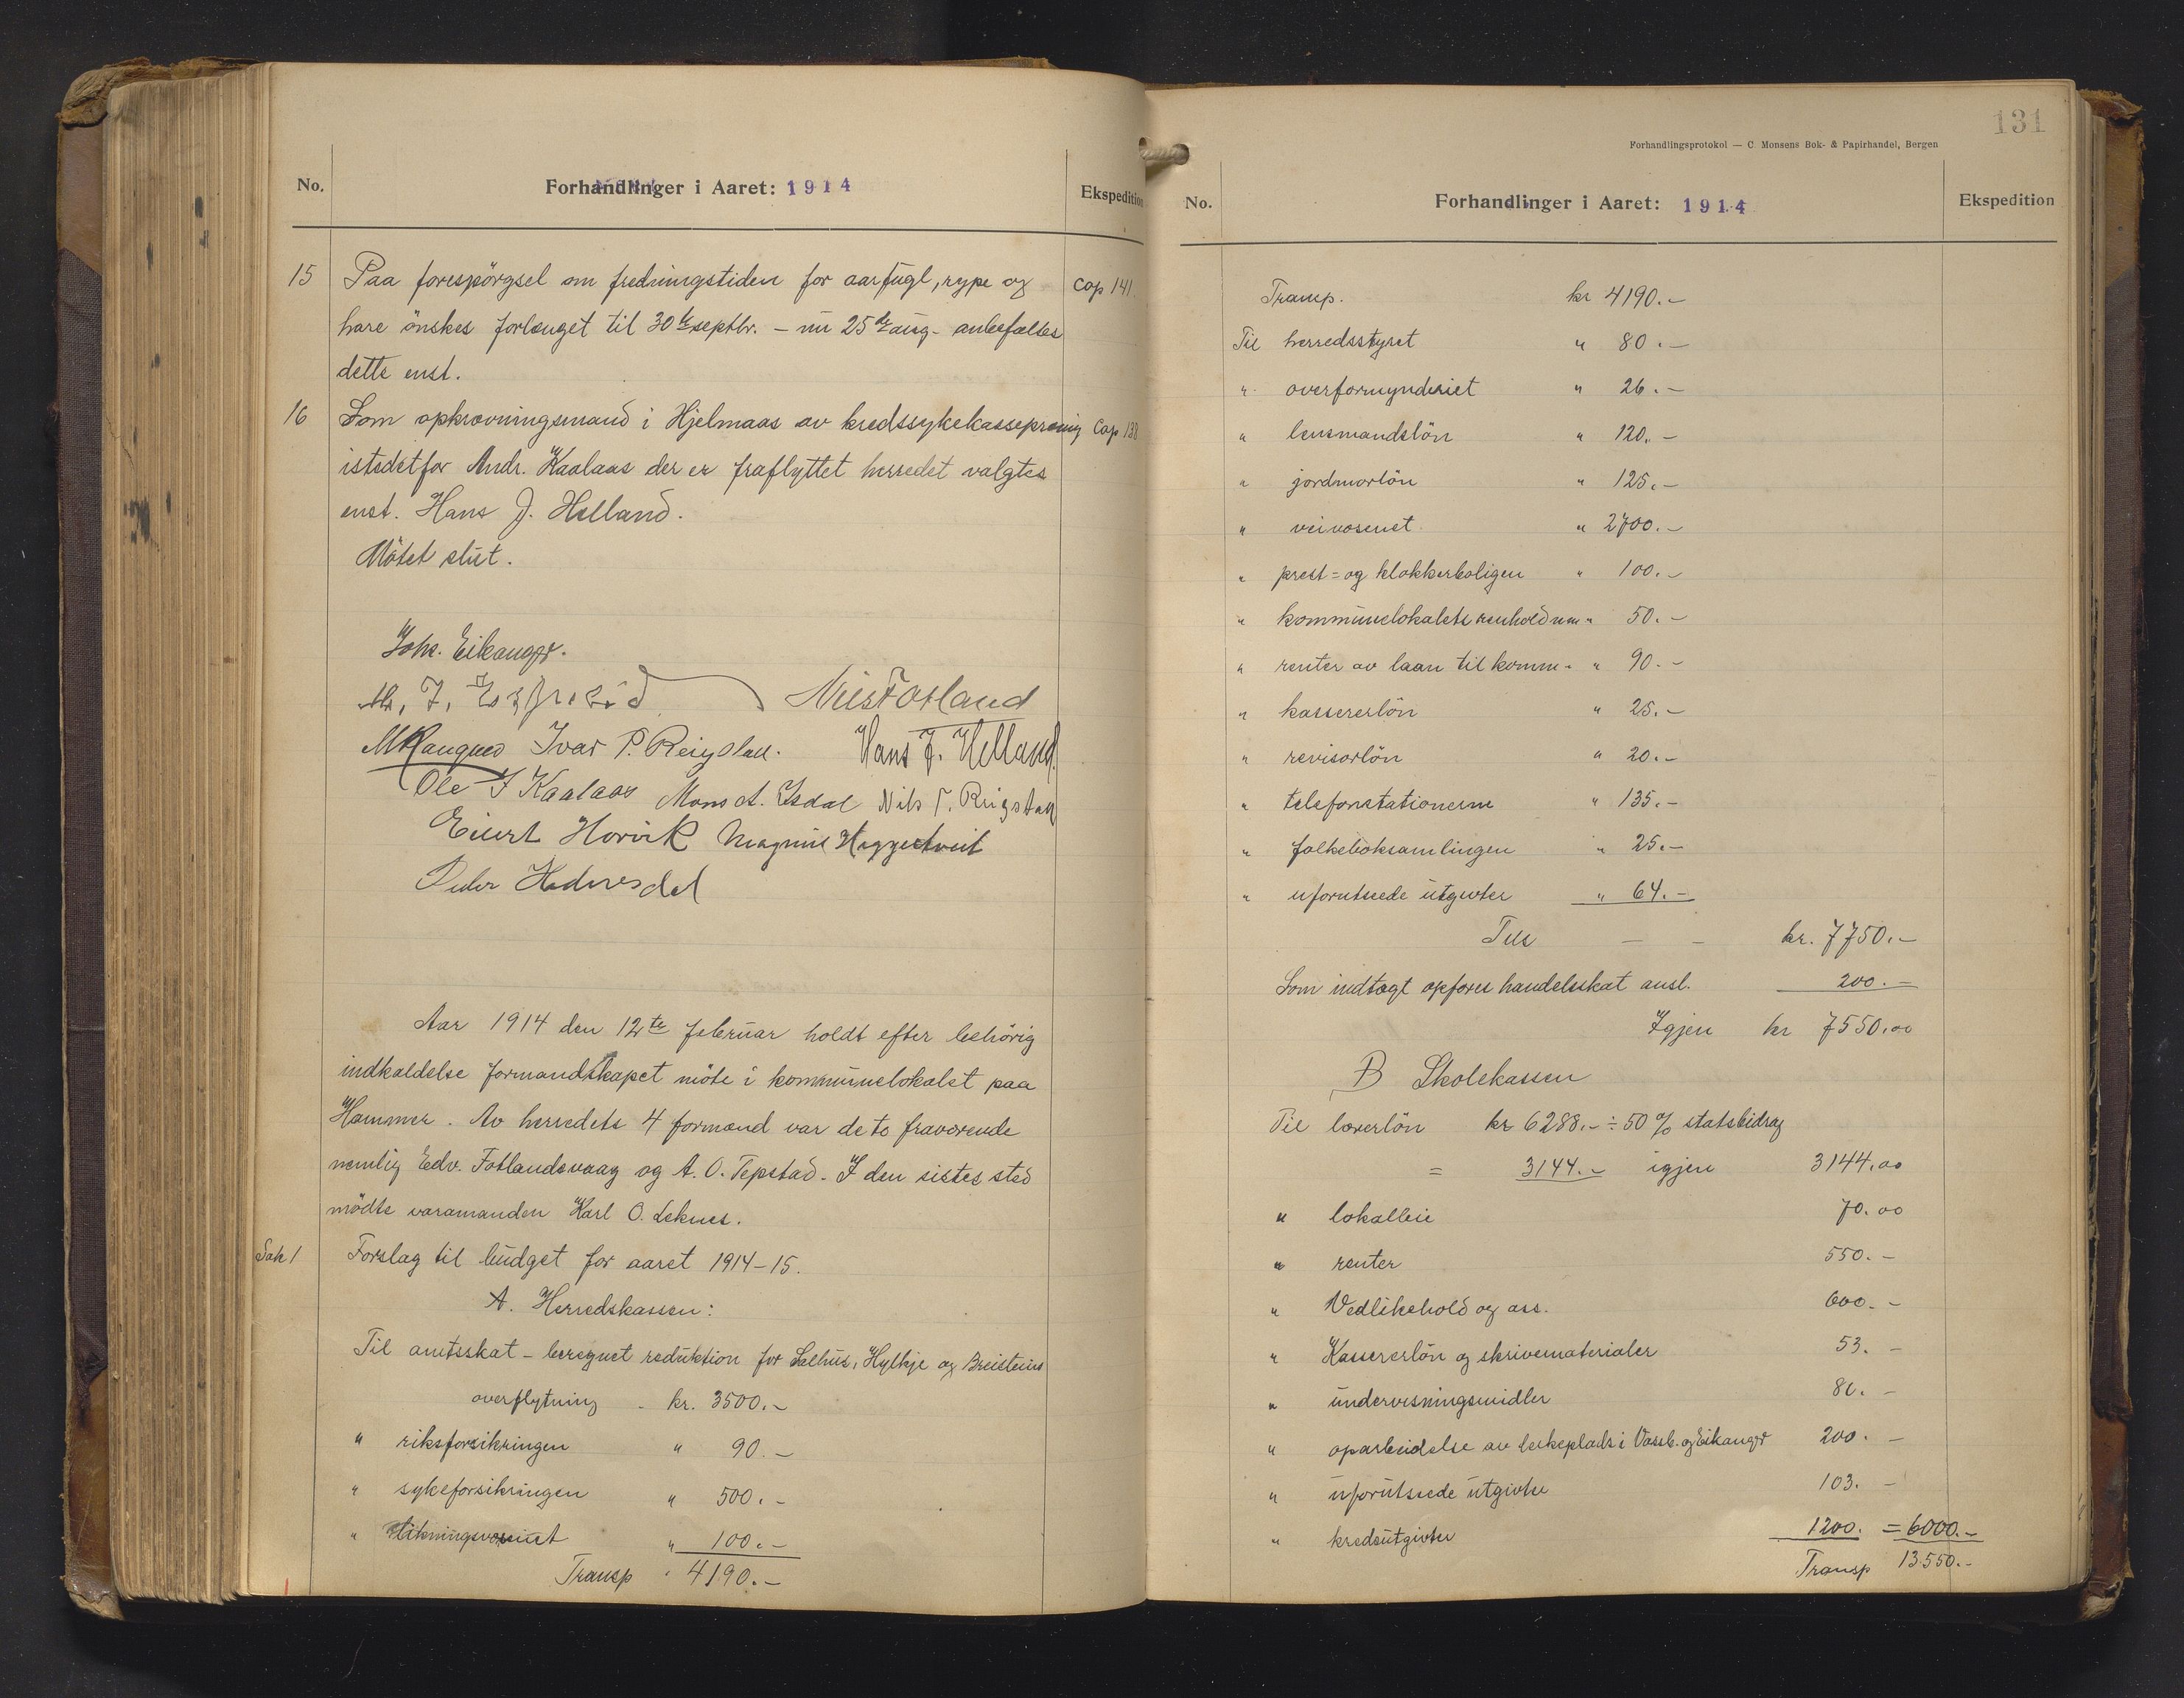 No.
Forhandlinger i Aaret: 1914
Ekspedition
15 Paa forespörgsel om fredningstiden for aarfugl, rype og Cop 141.
hare önskes forlænget til 30te septbr. – nu 25de aug – anbefaltes
dette enst.
16 Som opkrævningsmand i Hjelmaas av kredssykekassepræmie Cop 138
istedetfor Andr. Kaalaas der er fraflyttet herredet valgtes
enst. Hans J. Helland.
Mötet slut.
Johs. Eikanger.
M. J. Nils Fotland
Ivar P. Reigstad. Hans J. Helland.
Ole J Kaalaas Mons A. Isdal Nils T. Reigstad
Eilert Horvik Magnus Haggertveit
Peder
Aar 1914 den 12te februar holdt efter behörig
indkaldelse formandskapet möte i kommunelokalet paa
Hammer. Av herredets 4 formænd var de to fraværende
nemlig Edv. Fotlandsvaag og A. O. Tepstad. I den sistes sted
mödte varamanden Karl O. Leknes.
Sak 1 Forslag til budget for aaret 1914–15.
A. Herredskassen:
Til amtsskat – beregnet reduktion for Salhus, Hylkje og Breisteins
overflytning - kr. 3500.–
" riksforsikringen " 90.–
" sykeforsikringen " 500.–
" likningsvæsenet " 100.–
Transp " 4190.–
131
Forhandlingsprotokol — C. Monsens Bok- & Papirhandel, Bergen
No.
Forhandlinger i Aaret: 1914
Ekspedition
Transp. kr 4190.–
Til herredsstyret " 80.–
" overformynderiet " 26.–
" lensmandslön " 120.–
" jordmorlön " 125.–
" veivæsenet " 2700.–
" prest= og klokkerboligen " 100.–
" kommunelokalets renhold m.m. " 50.–
" renter av laan til komm. " 90.–
" kassererlön " 25.–
" revisorlön " 20.–
" telefonstationerne " 135.–
" folkeboksamlingen " 25.–
" uforutseede utgivter " 64.–
Tils – – kr. 7750.–
Som indtægt opföres handelsskat ansl. 200.–
Igjen kr 7550,00
B Skolekassen
Til lærerlön kr 6288.– ÷ 50 % statsbidrag
= 3144.– igjen 3144,00
" lokalleie 70.00
" renter 550.–
" Vedlikehold og ass. 600.–
" Kassererlön og skrivematerialer 53.–
" undervisningsmidler 80.–
" oparbeidelse av lekeplads i Vassb. og Eikanger 200.–
" uforutseede utgivter 103.–
" kredsutgivter 1200. = 6000.–
Transp 13550.–